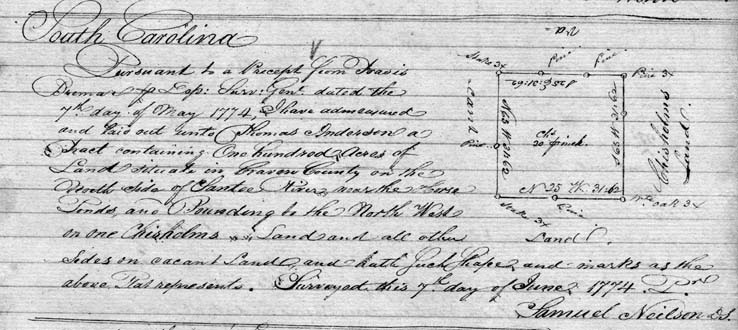 South Carolina
Pursuant to a Precept from Travis
Bremar Esqr Dep: Surr: Genl. dated the
7th day of May 1774, I have admeasured
and laid out unto Thomas Anderson a
Tract containing One hundred Acres of
Land situate in Craven County on the
North Side of Santee River, near the Horse
Pends, and Bounding to the North West
on one Chisholms Land and all other
Sides on vacant Land and hath Such Shape and marks as the
above Plat represents. Surveyed this 7th day of June 1774 Pr
Samuel Neilson D.S.
Va
Stake 3x
Pine
Pine
Pine 3x
S 25 E 31:62
Cant
Pine
N 65 W 31:62
Chs
20 p inch
Chisholms
Land
N 25 W. 31:62
Stake 3x
Pine
Wte oak 3x
Land